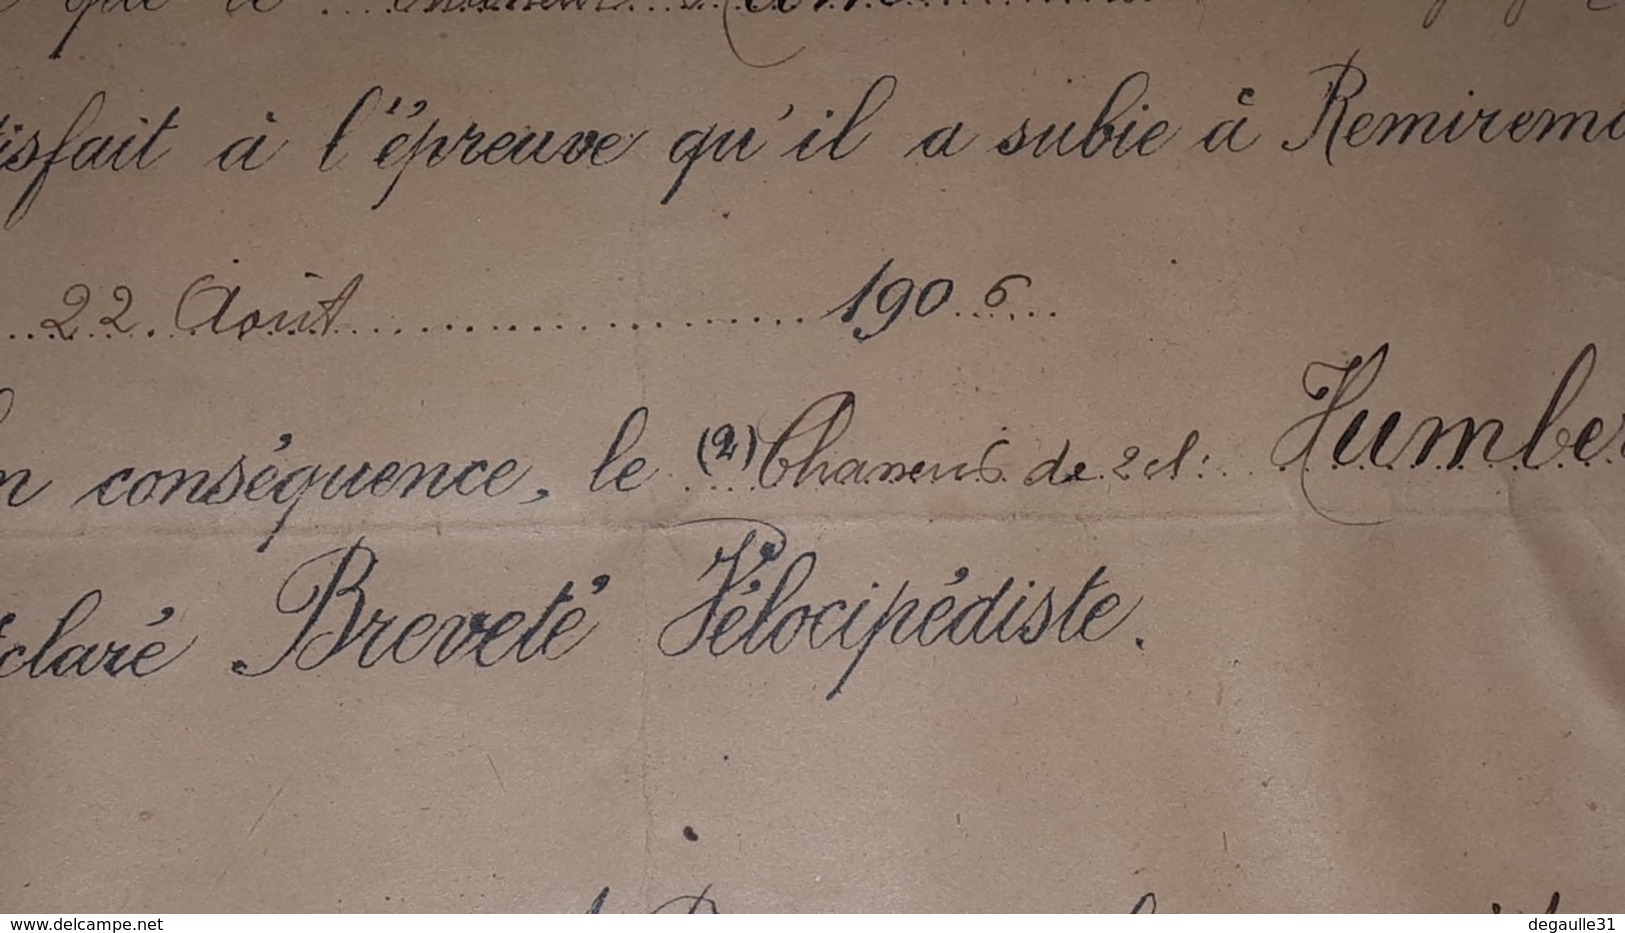 que le Chasseur
tisfait à l'épreuve qu'il a subie à Remiremo
22 Août 1906
n conséquence, le (2) Chasseur de 2 cl: Humber
éclaré Breveté Vélocipédiste.
www.delcampe.net
degaulle31